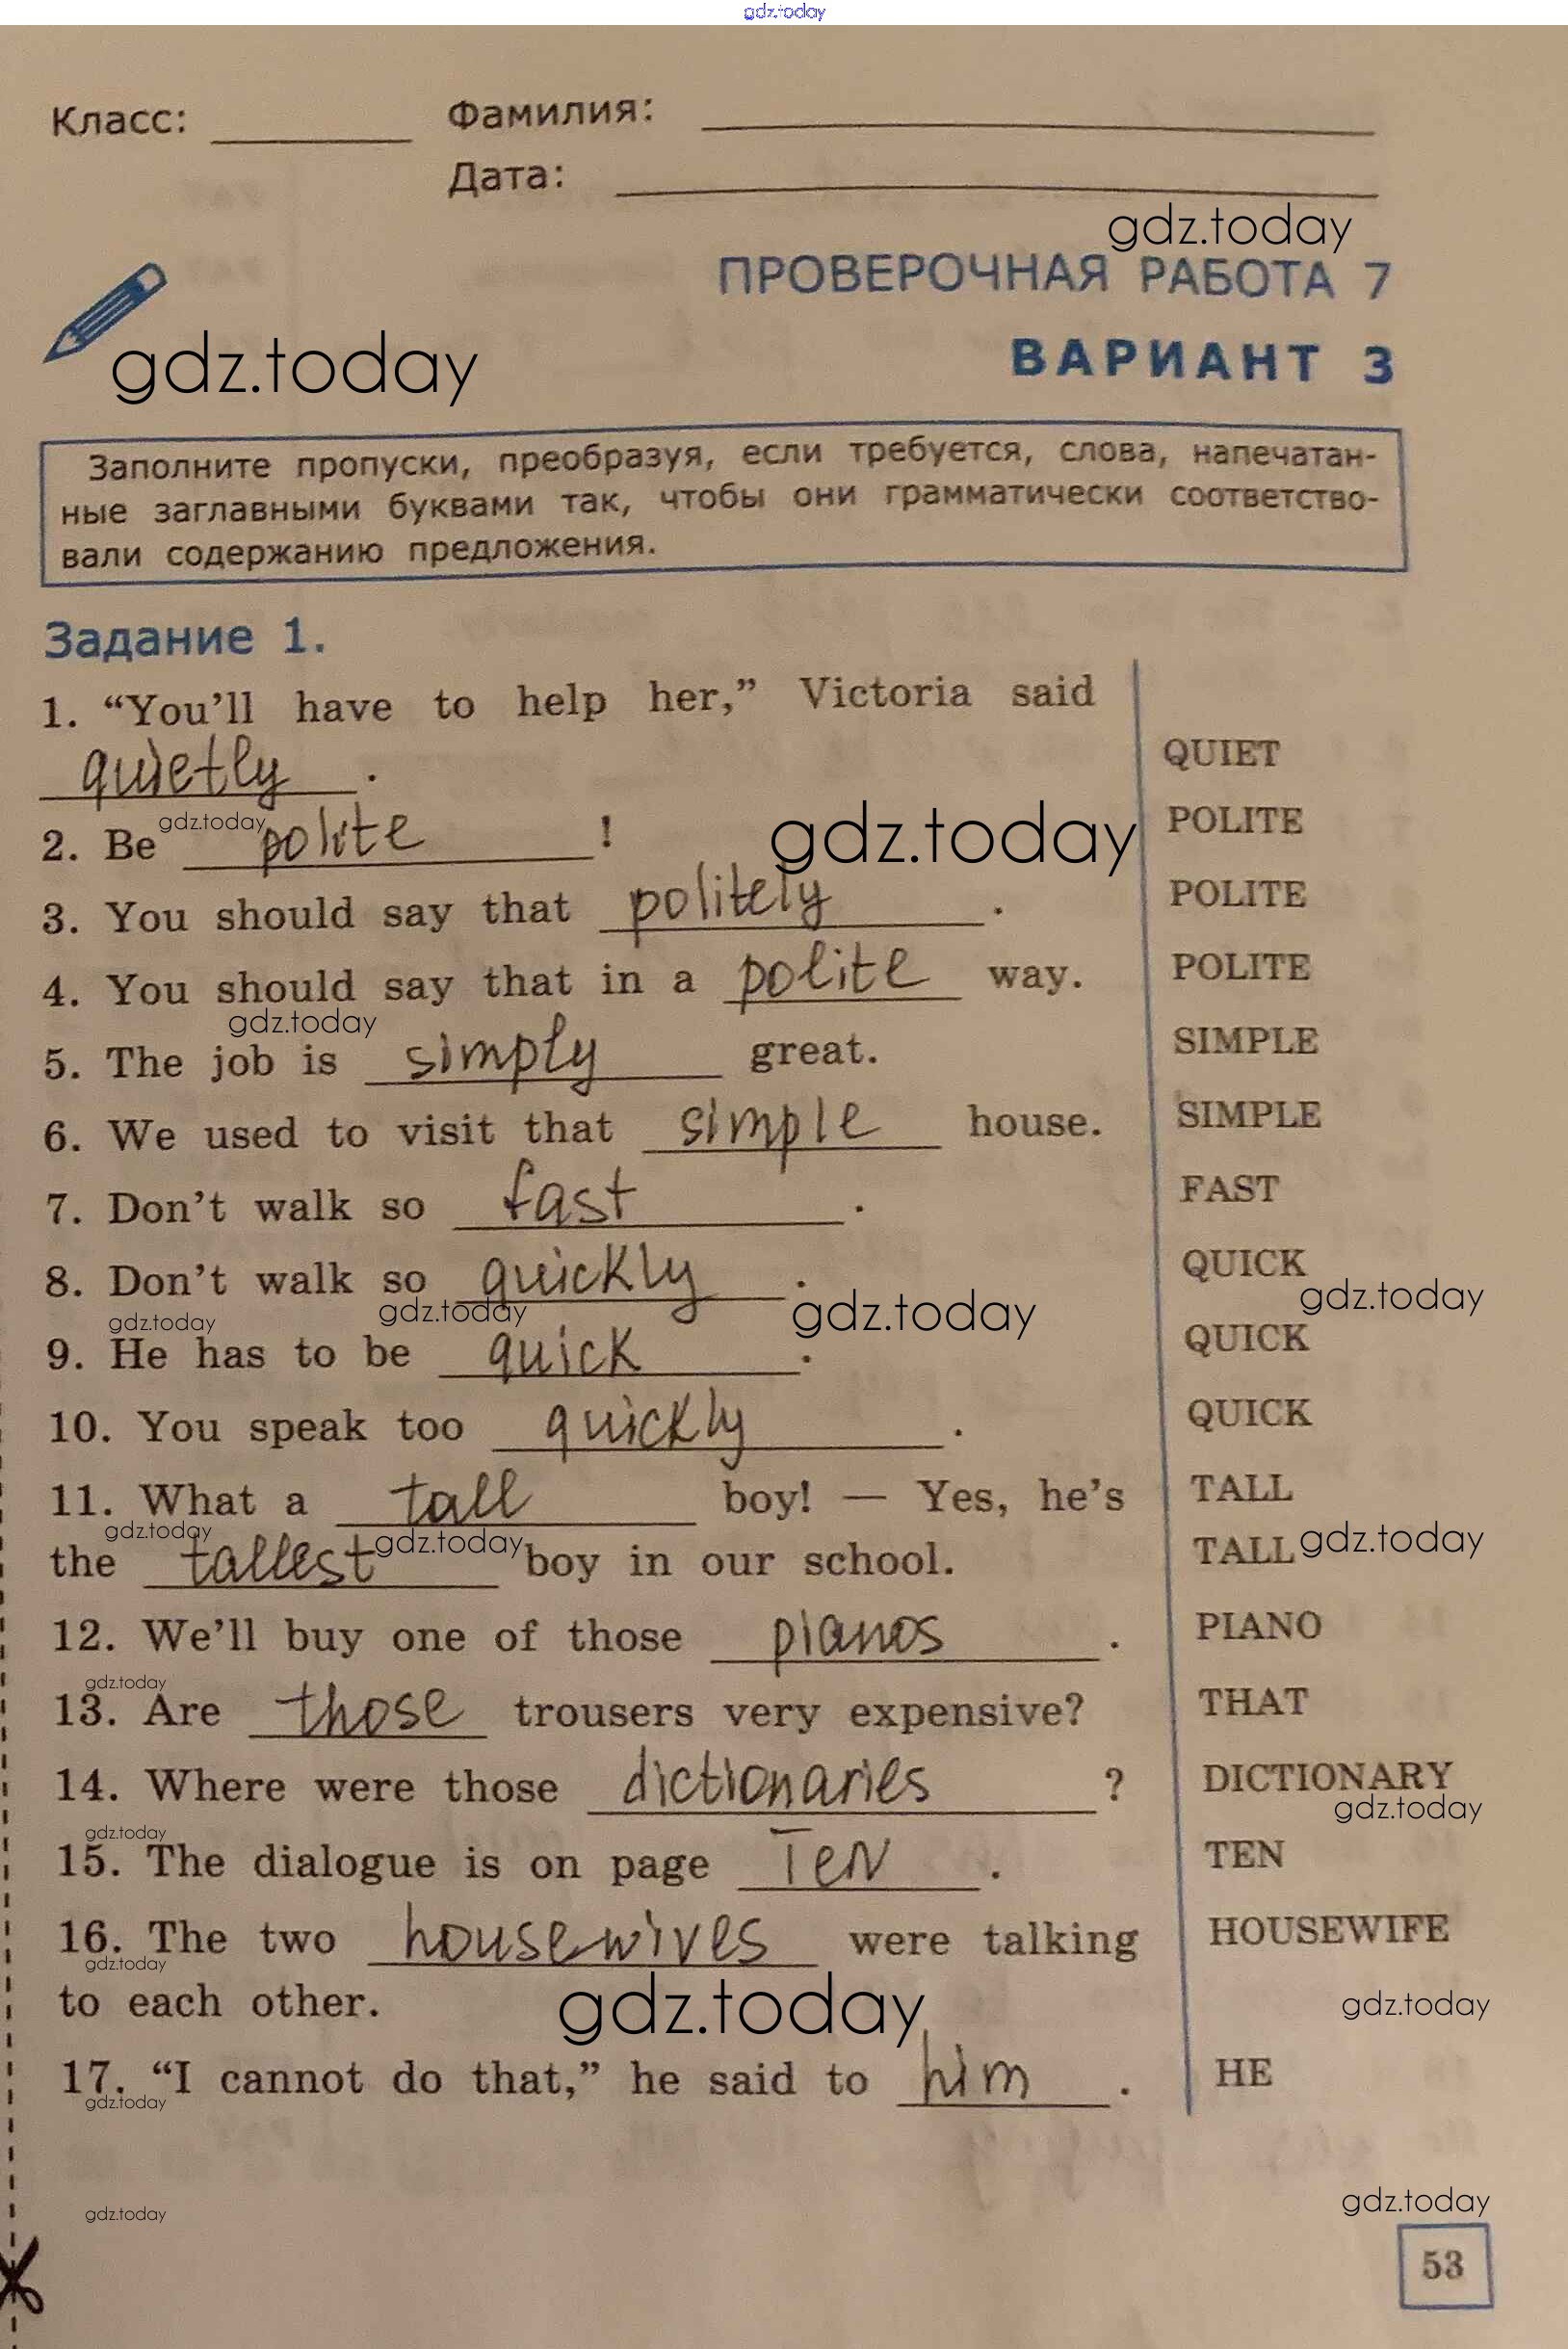 gdz.today
Класс: Фамилия:
Дата:
gdz.today
ПРОВЕРОЧНАЯ РАБОТА 7
gdz.today
ВАРИАНТ 3
Заполните пропуски, преобразуя, если требуется, слова, напечатан-
ные заглавными буквами так, чтобы они грамматически соответство-
вали содержанию предложения.
Задание 1.
1. “You’ll have to help her,” Victoria said
quietly . QUIET
gdz.today gdz.today
2. Be polite ! POLITE
3. You should say that politely . POLITE
4. You should say that in a polite way. POLITE
gdz.today
5. The job is simply great. SIMPLE
6. We used to visit that simple house. SIMPLE
7. Don’t walk so fast . FAST
8. Don’t walk so quickly . QUICK
gdz.today gdz.today gdz.today gdz.today
9. He has to be quick . QUICK
10. You speak too quickly . QUICK
11. What a tall boy! — Yes, he’s TALL
gdz.today gdz.today gdz.today
the tallest boy in our school. TALL
12. We’ll buy one of those pianos . PIANO
gdz.today
13. Are those trousers very expensive? THAT
14. Where were those dictionaries ? DICTIONARY
gdz.today gdz.today
15. The dialogue is on page Ten . TEN
16. The two housewives were talking HOUSEWIFE
gdz.today
to each other.
gdz.today gdz.today
17. “I cannot do that,” he said to him . HE
gdz.today
gdz.today gdz.today
53